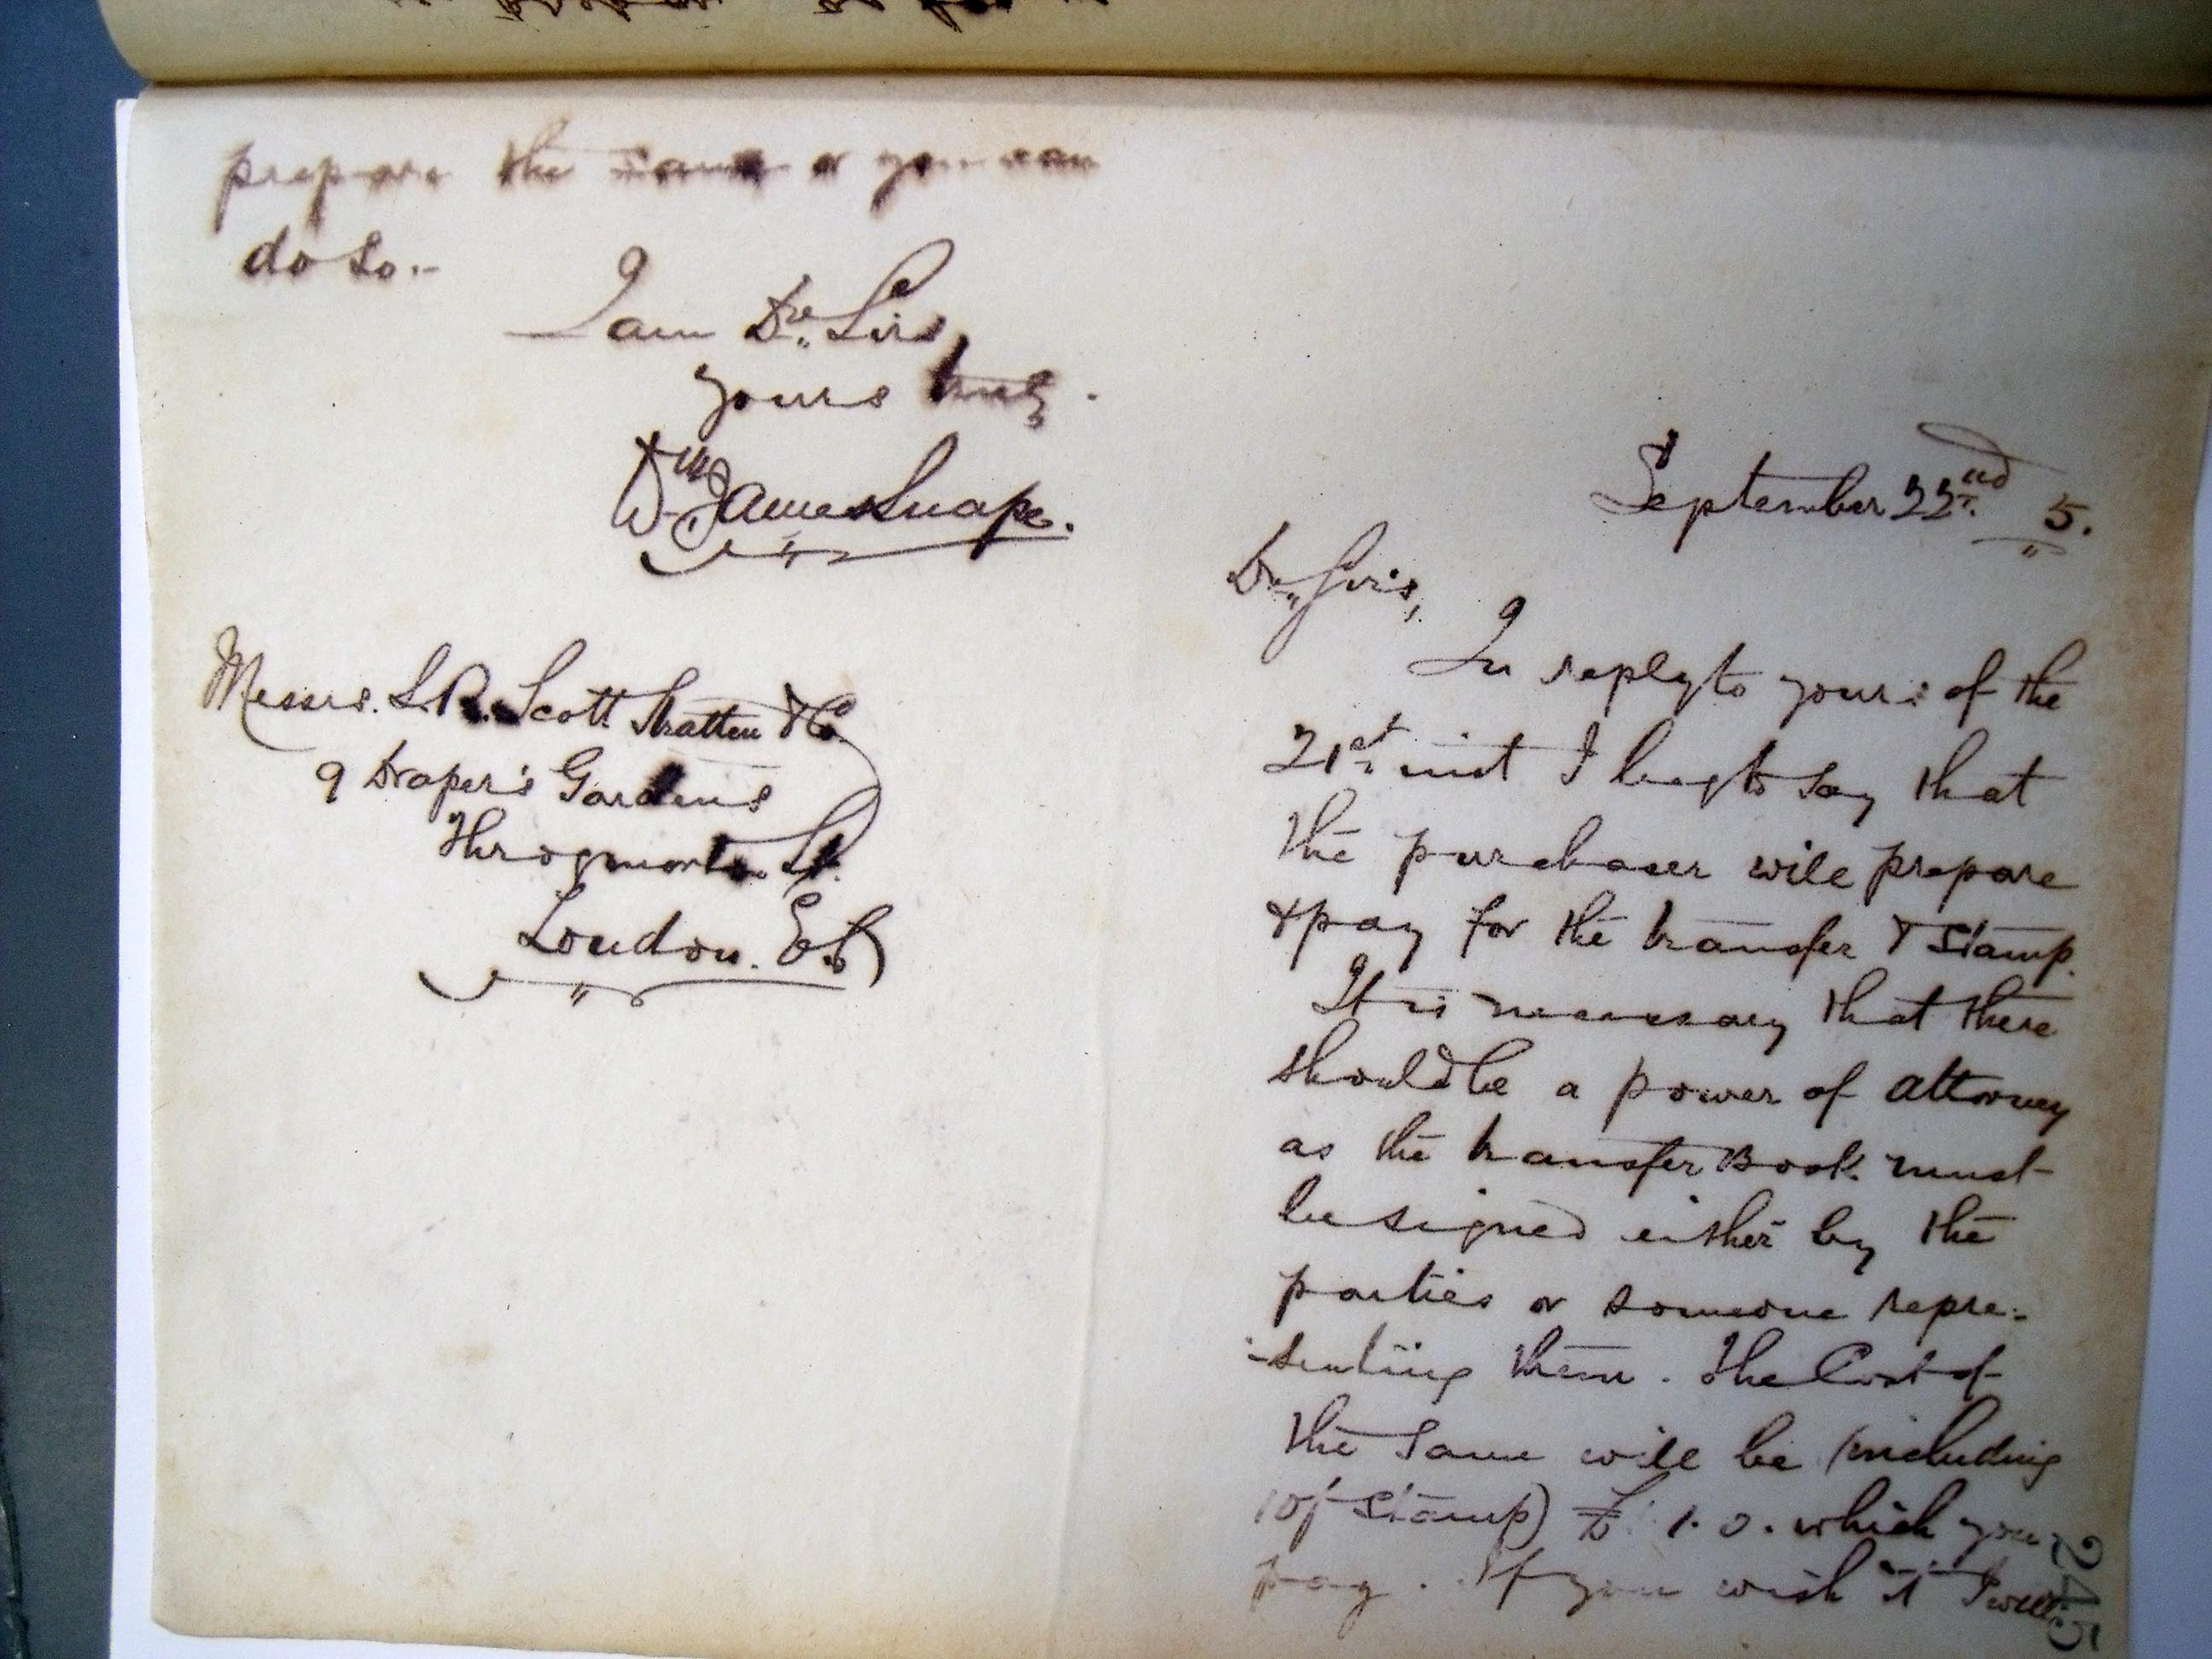 September 22nd 5.
Dr. Sirs,
In reply to yours of the
21st inst I beg to say that
the purchaser will prepare
& pay for the transfer & stamp.
It is necessary that there
should be a power of attorney
as the transfer Book must
be signed either by the
parties or someone repre-
-senting them. The Cost of
the same will be (including
10/- stamp) £1.1.0. which you
pay. If you wish it I will
245
prepare the same or you can
do so.-
I am Dr. Sirs,
yours truly.
Wm James Snape.
Messrs. S.R. Scott Stratten & Co.
9 Draper's Gardens
Throgmorton St.
London. E.C